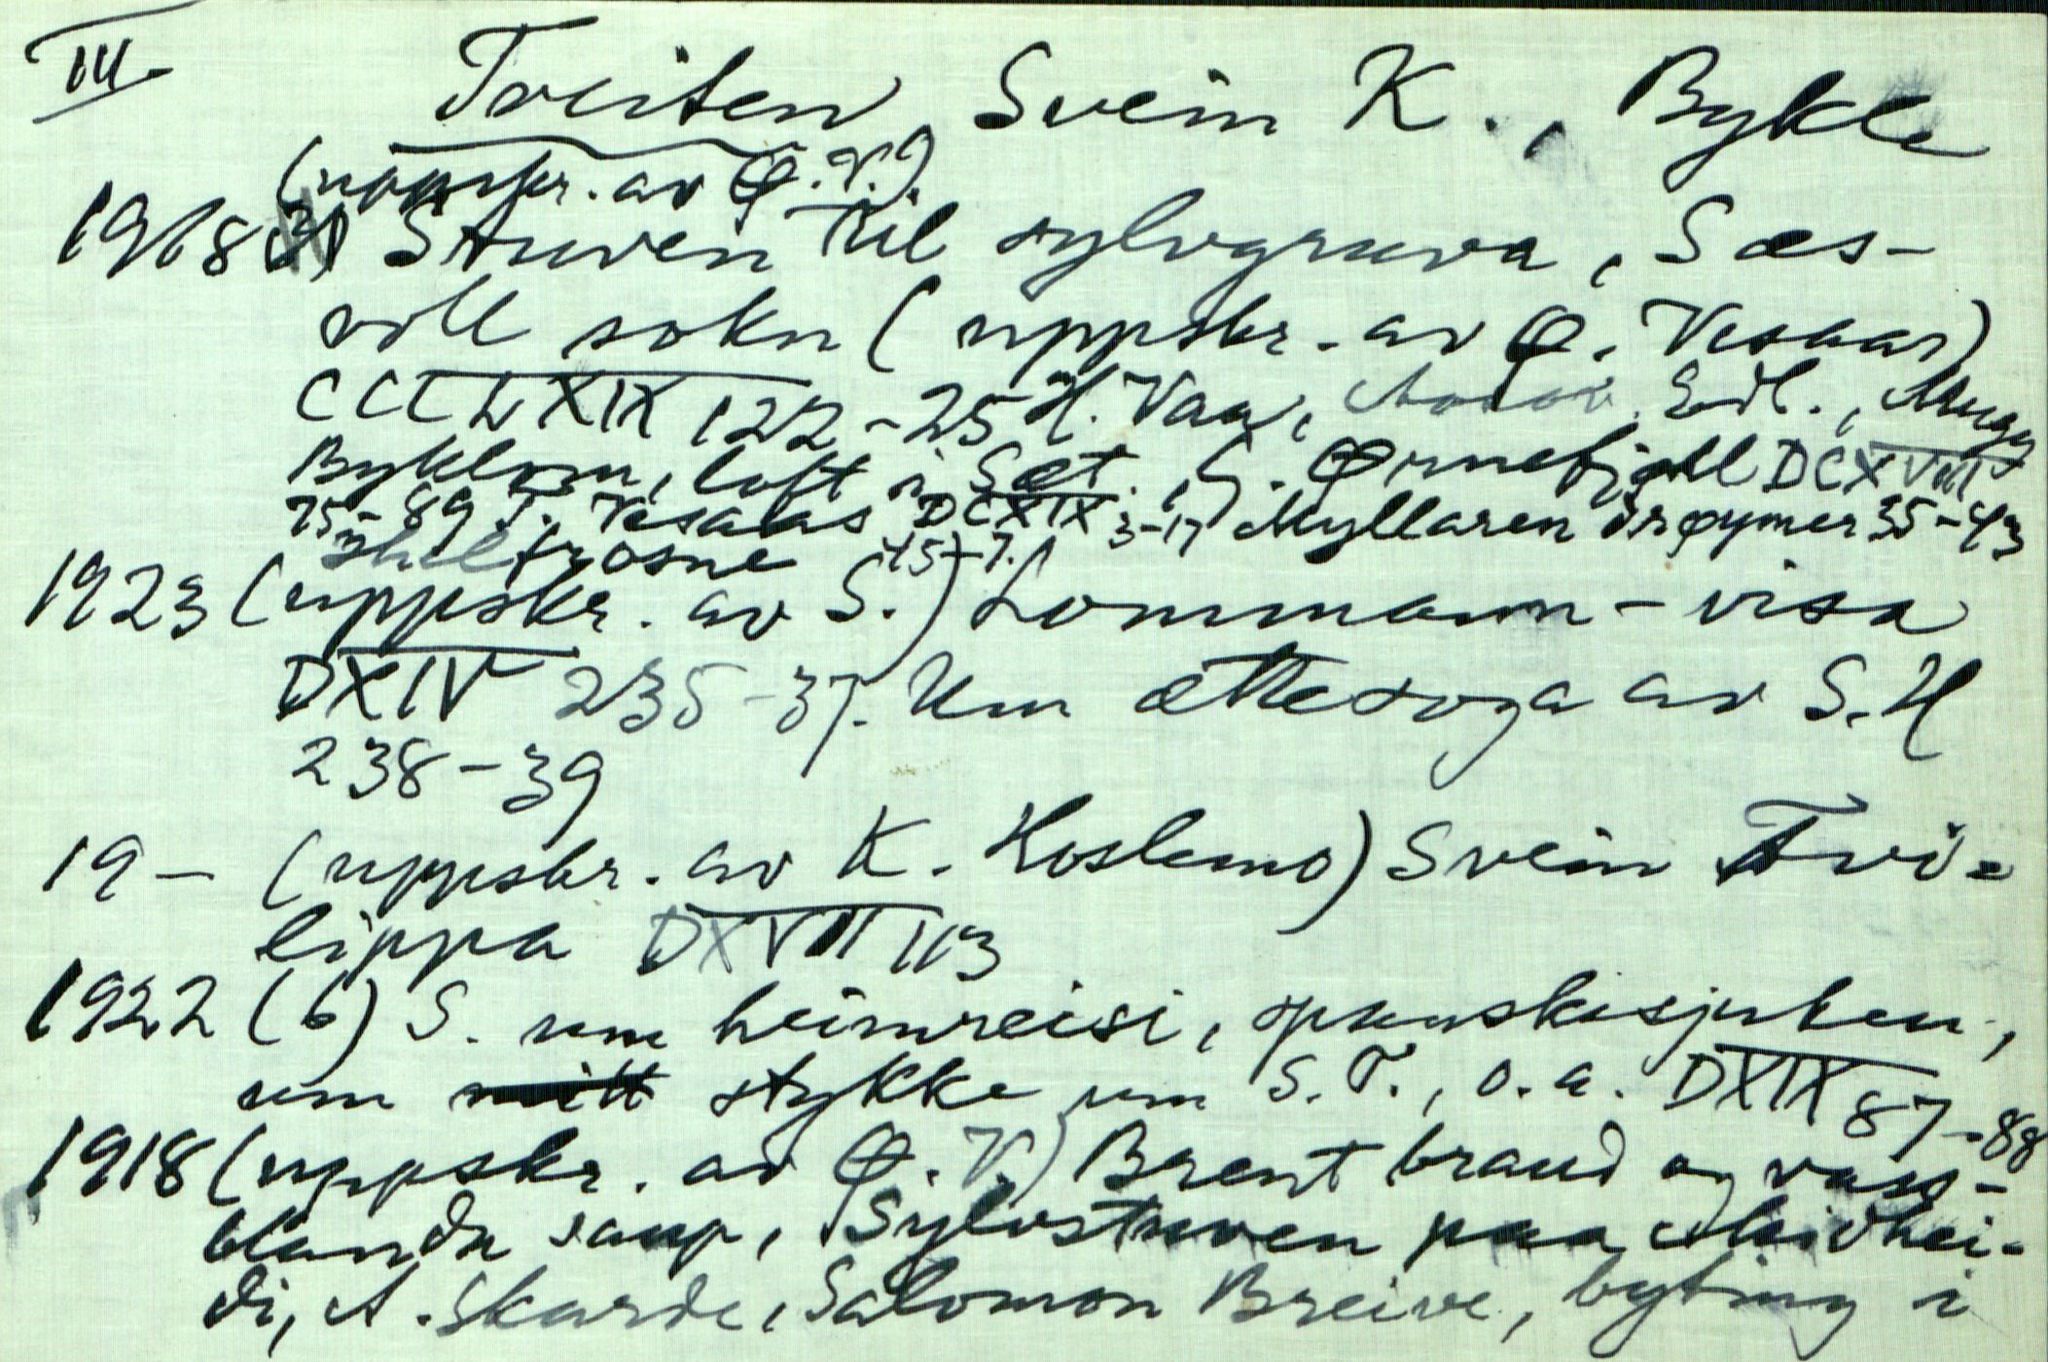 III
Tveiten, Svein K., Bykle
(uppskr. av Ø.V.)
1918 Stuven til sylvgruva, Sæs-
voll sokn (uppskr. av Ø. Vesaas)
CCCLXIX 122-25 H. Vaa, Edl.,
Byklom, loft i Sæt., G. Ørnefjell DCXVIII
75-89 T. Vesaas DCXIX 3-17 Myllaren drøymer 35-43
skelfrosne 45-7.
1923 (uppskr. av S.) Lommann-visa
DXIV 235-37. Um ættesoga av S.H
238-39
19- (uppskr. av K. Hoslemo) Svein Tvi-
lippa DXVIII 113
1922 (6) S. um heimreisi, spanskesjuken,
um stykke um S.T., o.a. DXIX 87-88
1918 (uppskr. av Ø.V.) Brent braud og vass-
blanda saup, Sylvstuven paa Meivhei-
di, A. Skarde, Salomon Breive, byting i